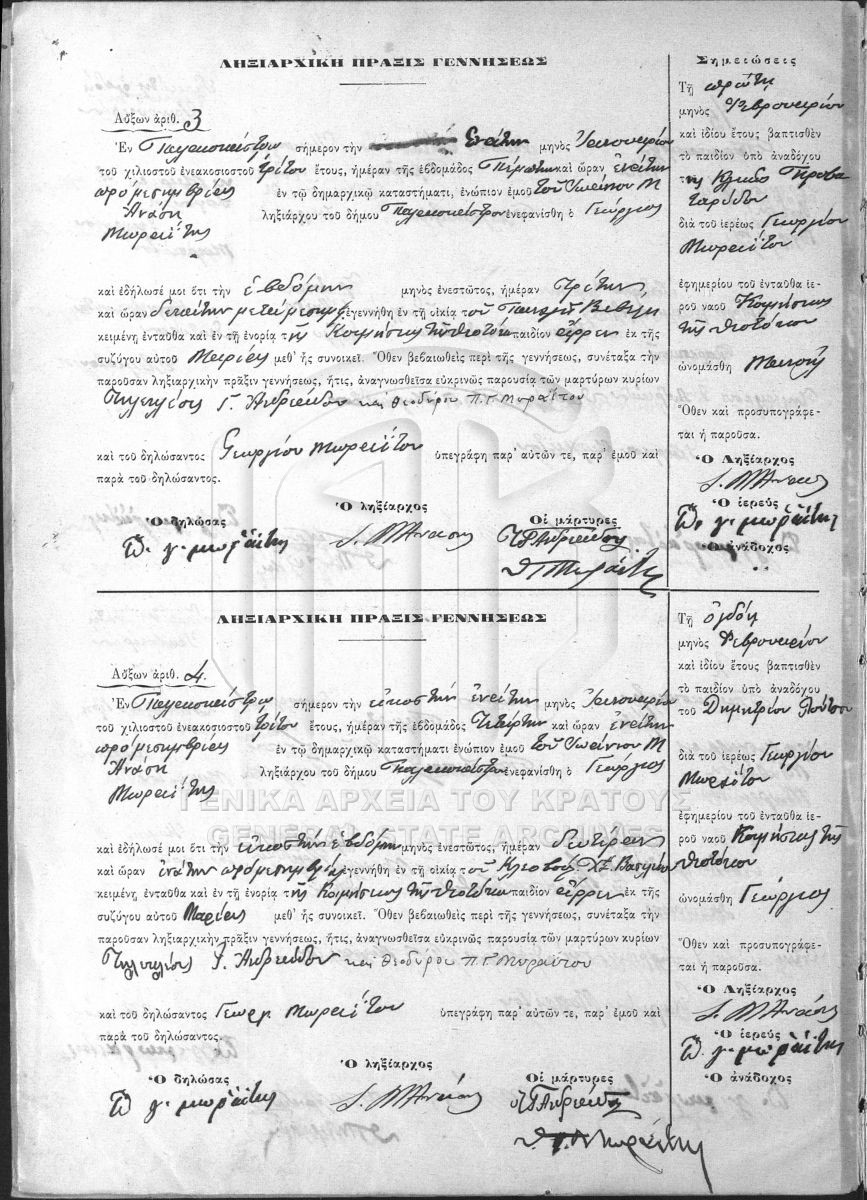 ΛΗΞΙΑΡΧΙΚΗ ΠΡΑΞΙΣ ΓΕΝΝΗΣΕΩΣ
Αὔξων ἀριθ. 3
Ἐν Παλαιοπύργῳ σήμερον τὴν Ἐνάτην μηνὸς Ἰανουαρίου
τοῦ χιλιοστοῦ ἐνεακοσιοστοῦ τρίτου ἔτους, ἡμέραν τῆς ἑβδομάδος Πέμπτην καὶ ὥραν ἐνάτην
πρὸ μεσημβρίας ἐν τῷ δημαρχικῷ καταστήματι, ἐνώπιον ἐμοῦ τοῦ Ἰωάννου Μ
Ἀνάση ληξιάρχου τοῦ δήμου ἐνεφανίσθη ὁ Γεώργιος
Μωραΐτης
καὶ ἐδήλωσέ μοι ὅτι τὴν ἑβδόμην μηνὸς ἐνεστῶτος, ἡμέραν Τρίτην
καὶ ὥραν δεκάτην μετὰ μεσημβρίαν ἐγεννήθη ἐν τῇ οἰκίᾳ τοῦ
κειμένη ἐνταῦθα καὶ ἐν τῇ ἐνορίᾳ τῆς Κοιμήσεως τῆς Θεοτόκου παιδίον ἄρρεν ἐκ τῆς
συζύγου αὐτοῦ Μαρίας μεθ' ἧς συνοικεῖ. Ὅθεν βεβαιωθεὶς περὶ τῆς γεννήσεως, συνέταξα τὴν
παροῦσαν ληξιαρχικὴν πρᾶξιν γεννήσεως, ἥτις, ἀναγνωσθεῖσα εὐκρινῶς παρουσία τῶν μαρτύρων κυρίων
Γ. καὶ Θεοδώρου Π. Γ. Μωραΐτου
καὶ τοῦ δηλώσαντος Γεωργίου Μωραΐτου ὑπεγράφη παρ' αὐτῶν τε, παρ' ἐμοῦ καὶ
παρὰ τοῦ δηλώσαντος.
Ὁ δηλώσας Ὁ ληξίαρχος Οἱ μάρτυρες
γ. μωραΐτης Ι. Μ Ἀνάσης
Θ Π Μωραΐτης
Σημειώσεις
Τῇ πρώτῃ
μηνὸς Φεβρουαρίου
καὶ ἰδίου ἔτους βαπτισθὲν
τὸ παιδίον ὑπὸ ἀναδόχου
διὰ τοῦ ἱερέως Γεωργίου
Μωραΐτου
ἐφημερίου τοῦ ἐνταῦθα ἱε-
ροῦ ναοῦ Κοιμήσεως
τῆς Θεοτόκου
ὠνομάσθη
Ὅθεν καὶ προσυπογράφε-
ται ἡ παροῦσα.
Ὁ Ληξίαρχος
Ι. Μ Ἀνάσης
Ὁ ἱερεὺς
γ. μωραΐτης
Ὁ ἀνάδοχος
ΛΗΞΙΑΡΧΙΚΗ ΠΡΑΞΙΣ ΓΕΝΝΗΣΕΩΣ
Αὔξων ἀριθ. 4.
Ἐν σήμερον τὴν εἰκοστὴν ἐνάτην μηνὸς Ἰανουαρίου
τοῦ χιλιοστοῦ ἐνεακοσιοστοῦ τρίτου ἔτους, ἡμέραν τῆς ἑβδομάδος Τετάρτην καὶ ὥραν ἐνάτην
πρὸ μεσημβρίας ἐν τῷ δημαρχικῷ καταστήματι ἐνώπιον ἐμοῦ τοῦ Ἰωάννου Μ
Ἀνάση ληξιάρχου τοῦ δήμου ἐνεφανίσθη ὁ Γεώργιος
Μωραΐτης
ΓΕΝΙΚΑ ΑΡΧΕΙΑ ΤΟΥ ΚΡΑΤΟΥΣ
GENERAL STATE ARCHIVES
καὶ ἐδήλωσέ μοι ὅτι τὴν εἰκοστὴν ἑβδόμην μηνὸς ἐνεστῶτος, ἡμέραν Δευτέραν
καὶ ὥραν ἐνάτην πρὸ μεσημβρίας ἐγεννήθη ἐν τῇ οἰκίᾳ τοῦ
κειμένῃ ἐνταῦθα καὶ ἐν τῇ ἐνορίᾳ τῆς Κοιμήσεως τῆς Θεοτόκου παιδίον ἄρρεν ἐκ τῆς
συζύγου αὐτοῦ Μαρίας μεθ' ἧς συνοικεῖ. Ὅθεν βεβαιωθεὶς περὶ τῆς γεννήσεως, συνέταξα τὴν
παροῦσαν ληξιαρχικὴν πρᾶξιν γεννήσεως, ἥτις, ἀναγνωσθεῖσα εὐκρινῶς παρουσία τῶν μαρτύρων κυρίων
Γ. καὶ Θεοδώρου Π. Γ. Μωραΐτου
καὶ τοῦ δηλώσαντος Γεωργ. Μωραΐτου ὑπεγράφη παρ' αὐτῶν τε, παρ' ἐμοῦ καὶ
παρὰ τοῦ δηλώσαντος.
Ὁ δηλώσας Ὁ ληξίαρχος Οἱ μάρτυρες
γ. μωραΐτης Ι. Μ Ἀνάσης
Θ. Π. Μωραΐτης
Τῇ ὀγδόῃ
μηνὸς Φεβρουαρίου
καὶ ἰδίου ἔτους βαπτισθὲν
τὸ παιδίον ὑπὸ ἀναδόχου
τοῦ Δημητρίου
διὰ τοῦ ἱερέως Γεωργίου
Μωραΐτου
ἐφημερίου τοῦ ἐνταῦθα ἱε-
ροῦ ναοῦ Κοιμήσεως τῆς
Θεοτόκου
ὠνομάσθη Γεώργιος
Ὅθεν καὶ προσυπογράφε-
ται ἡ παροῦσα.
Ὁ Ληξίαρχος
Ι. Μ Ἀνάσης
Ὁ ἱερεὺς
γ. μωραΐτης
Ὁ ἀνάδοχος